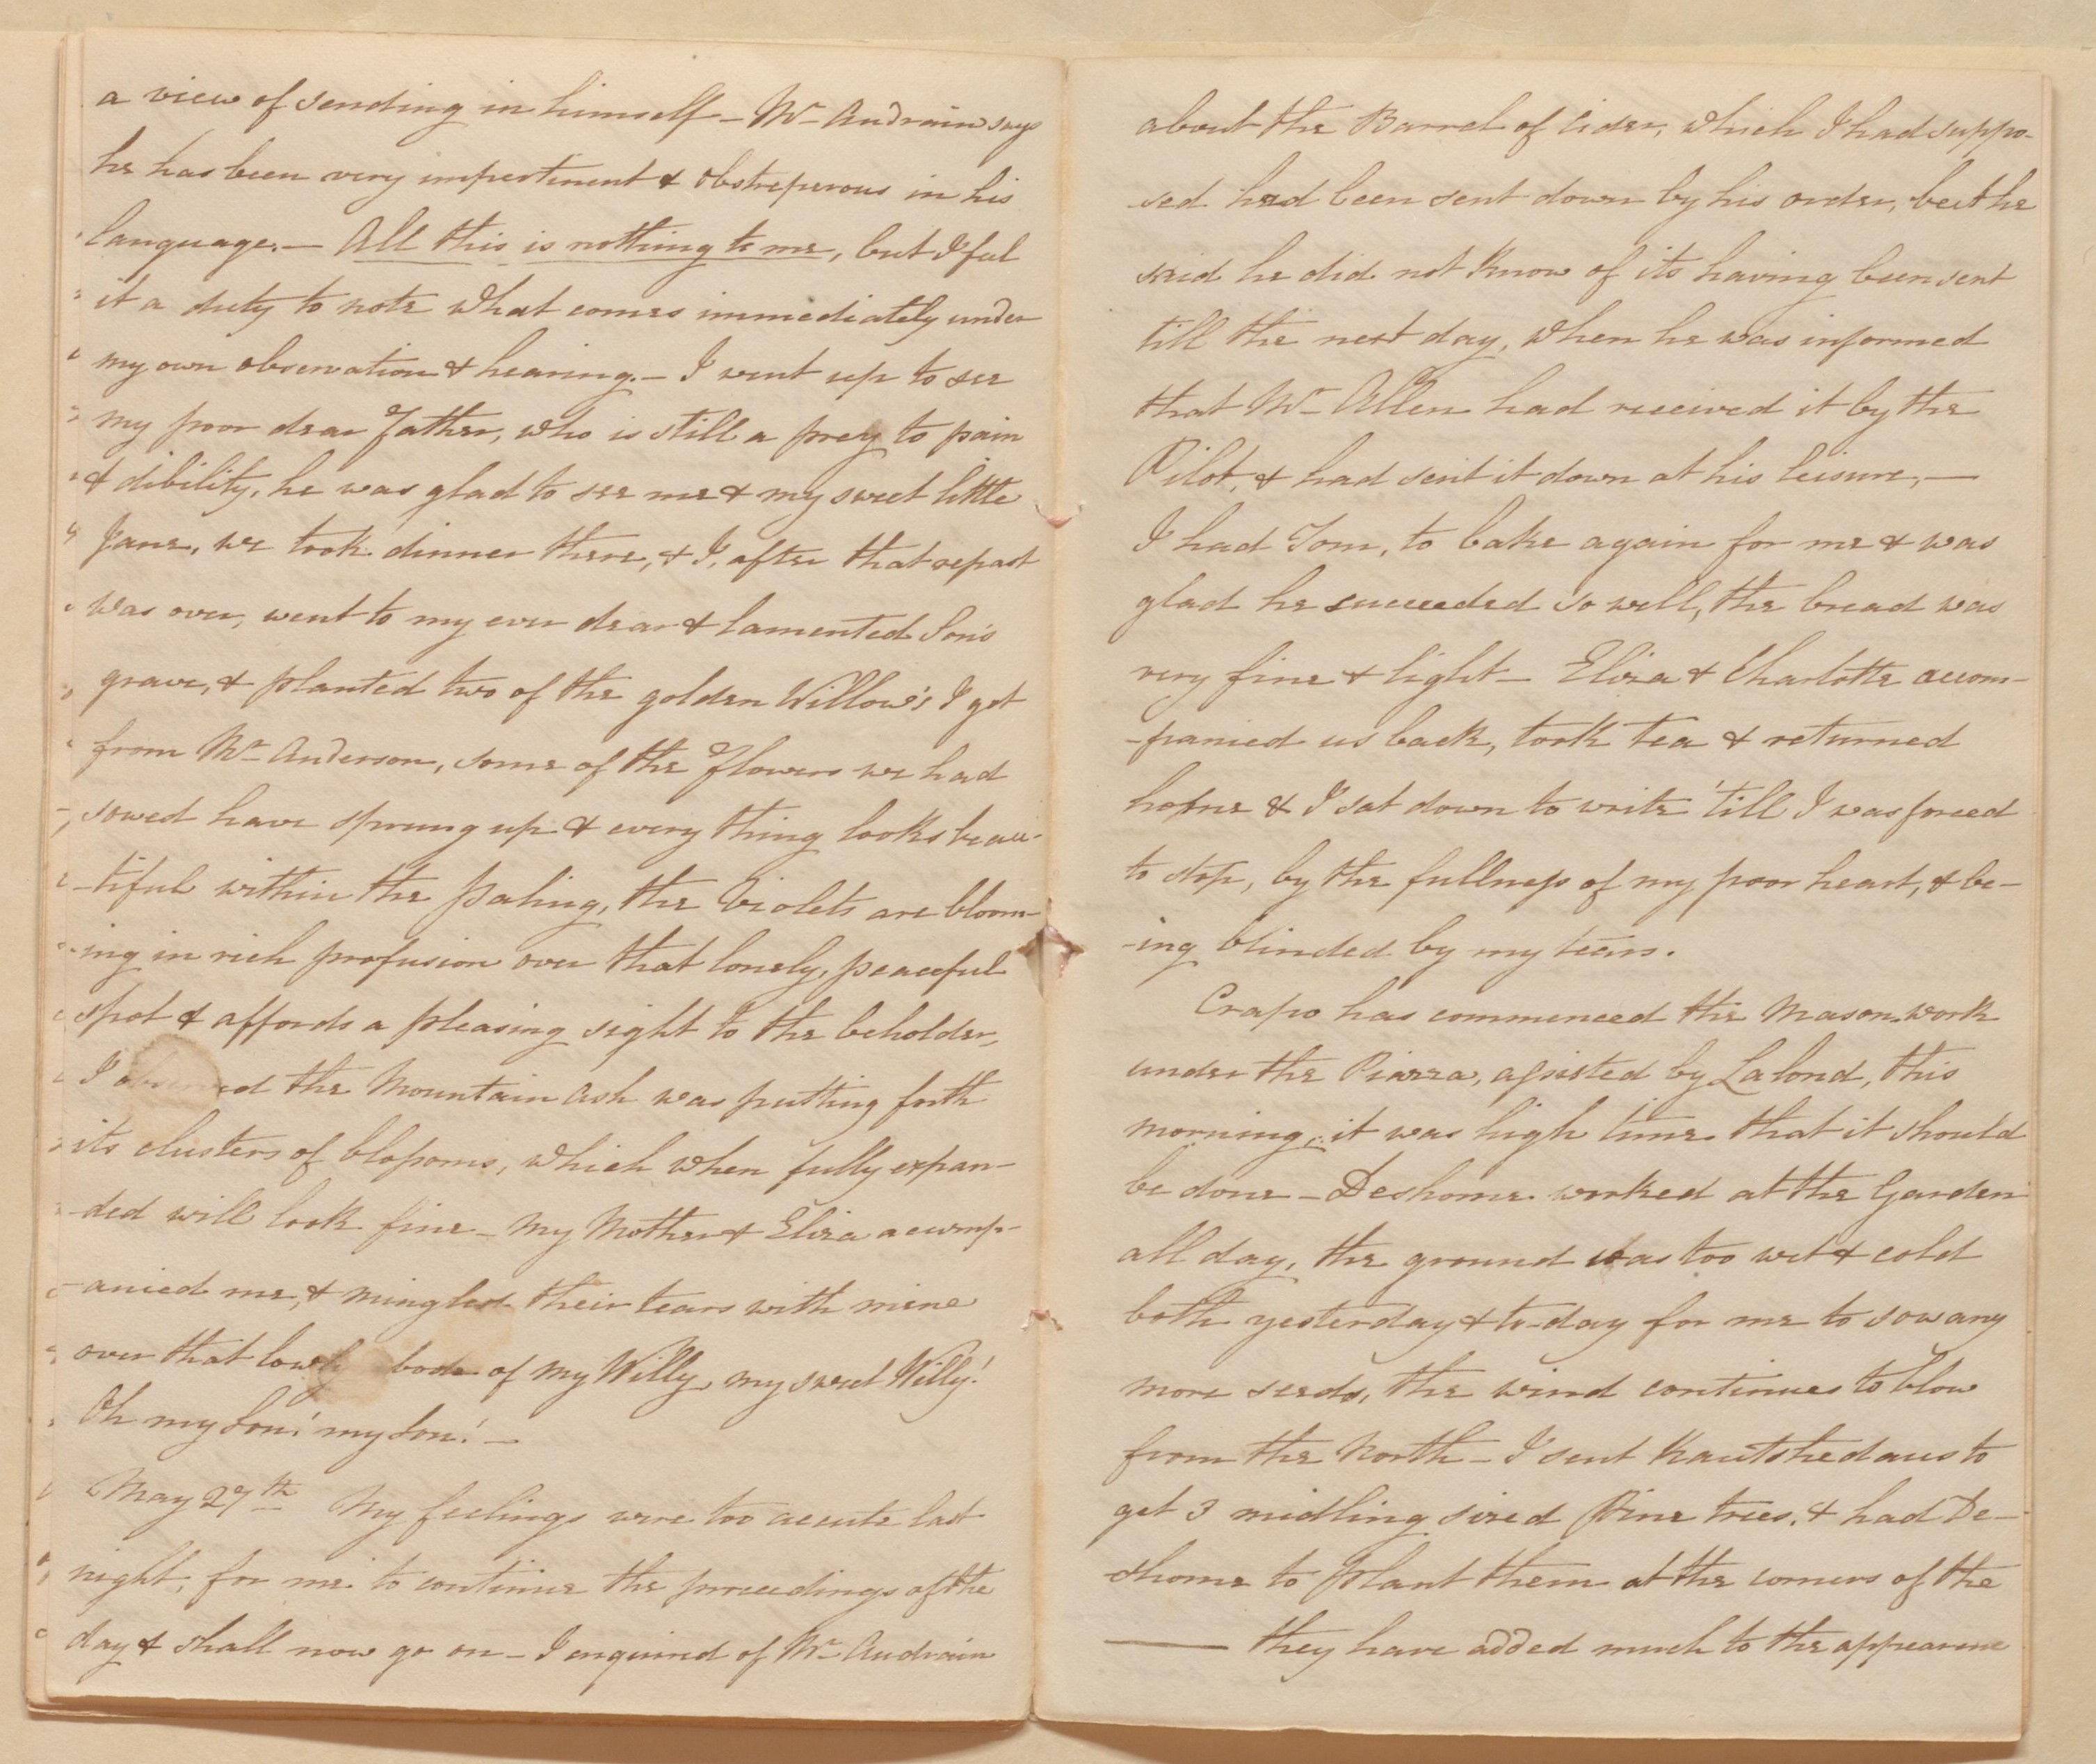 a view of sending in himself – Mr Audrain says
he has been very impertinent & obstreperous in his
language. – All this is nothing to me, but I feel
it a duty to note what comes immediately under
my own observation & hearing. – I went up to see
my poor dear Father, who is still a prey to pain
& dibility, he was glad to see me & my sweet little
Jane, we took dinner there, & I, after that repast
was over, went to my ever dear & lamented Son's
grave, & planted two of the golden Willow's I got
from Mr Anderson, some of the Flowers we had
sowed have sprung up & every thing looks beau-
-tiful within the paling, the Violets are bloom-
-ing in rich profusion over that lonely, peaceful
spot & affords a pleasing sight to the beholder,
I observed the Mountain Ash was putting forth
its clusters of blossoms, which when fully expan-
-ded will look fine – My Mother & Eliza accomp-
-anied me, & mingled their tears with mine
over that lowly abode of my Willy, my sweet Willy!
Oh my Son! my Son! –
May 27th My feelings were too accute last
night, for me to continue the proceedings of the
day & shall now go on – I enquired of Mr Audrain
about the Barrel of Cider, which I had suppo-
-sed had been sent down by his order, but he
said he did not know of its having been sent
till the next day, when he was informed
that Mr Allen had received it by the
Pilot, & had sent it down at his leisure, –
I had Tom, to bake again for me & was
glad he succeeded so well, the bread was
very fine & light – Eliza & Charlotte accom-
-panied us back, took tea & returned
home & I sat down to write 'till I was forced
to stop, by the fullness of my poor heart, & be-
-ing blinded by my tears.
Crapo has commenced the Mason work
under the Piazza, assisted by Lalond, this
morning, it was high time that it should
be done – Deshome worked at the Garden
all day, the ground was too wet & cold
both yesterday & to-day for me to sow any
more seeds, the wind continues to blow
from the North – I sent Kautshedaus to
get 3 midling sized Pine trees, & had De-
-shome to plant them at the corners of the
—— they have added much to the appearance